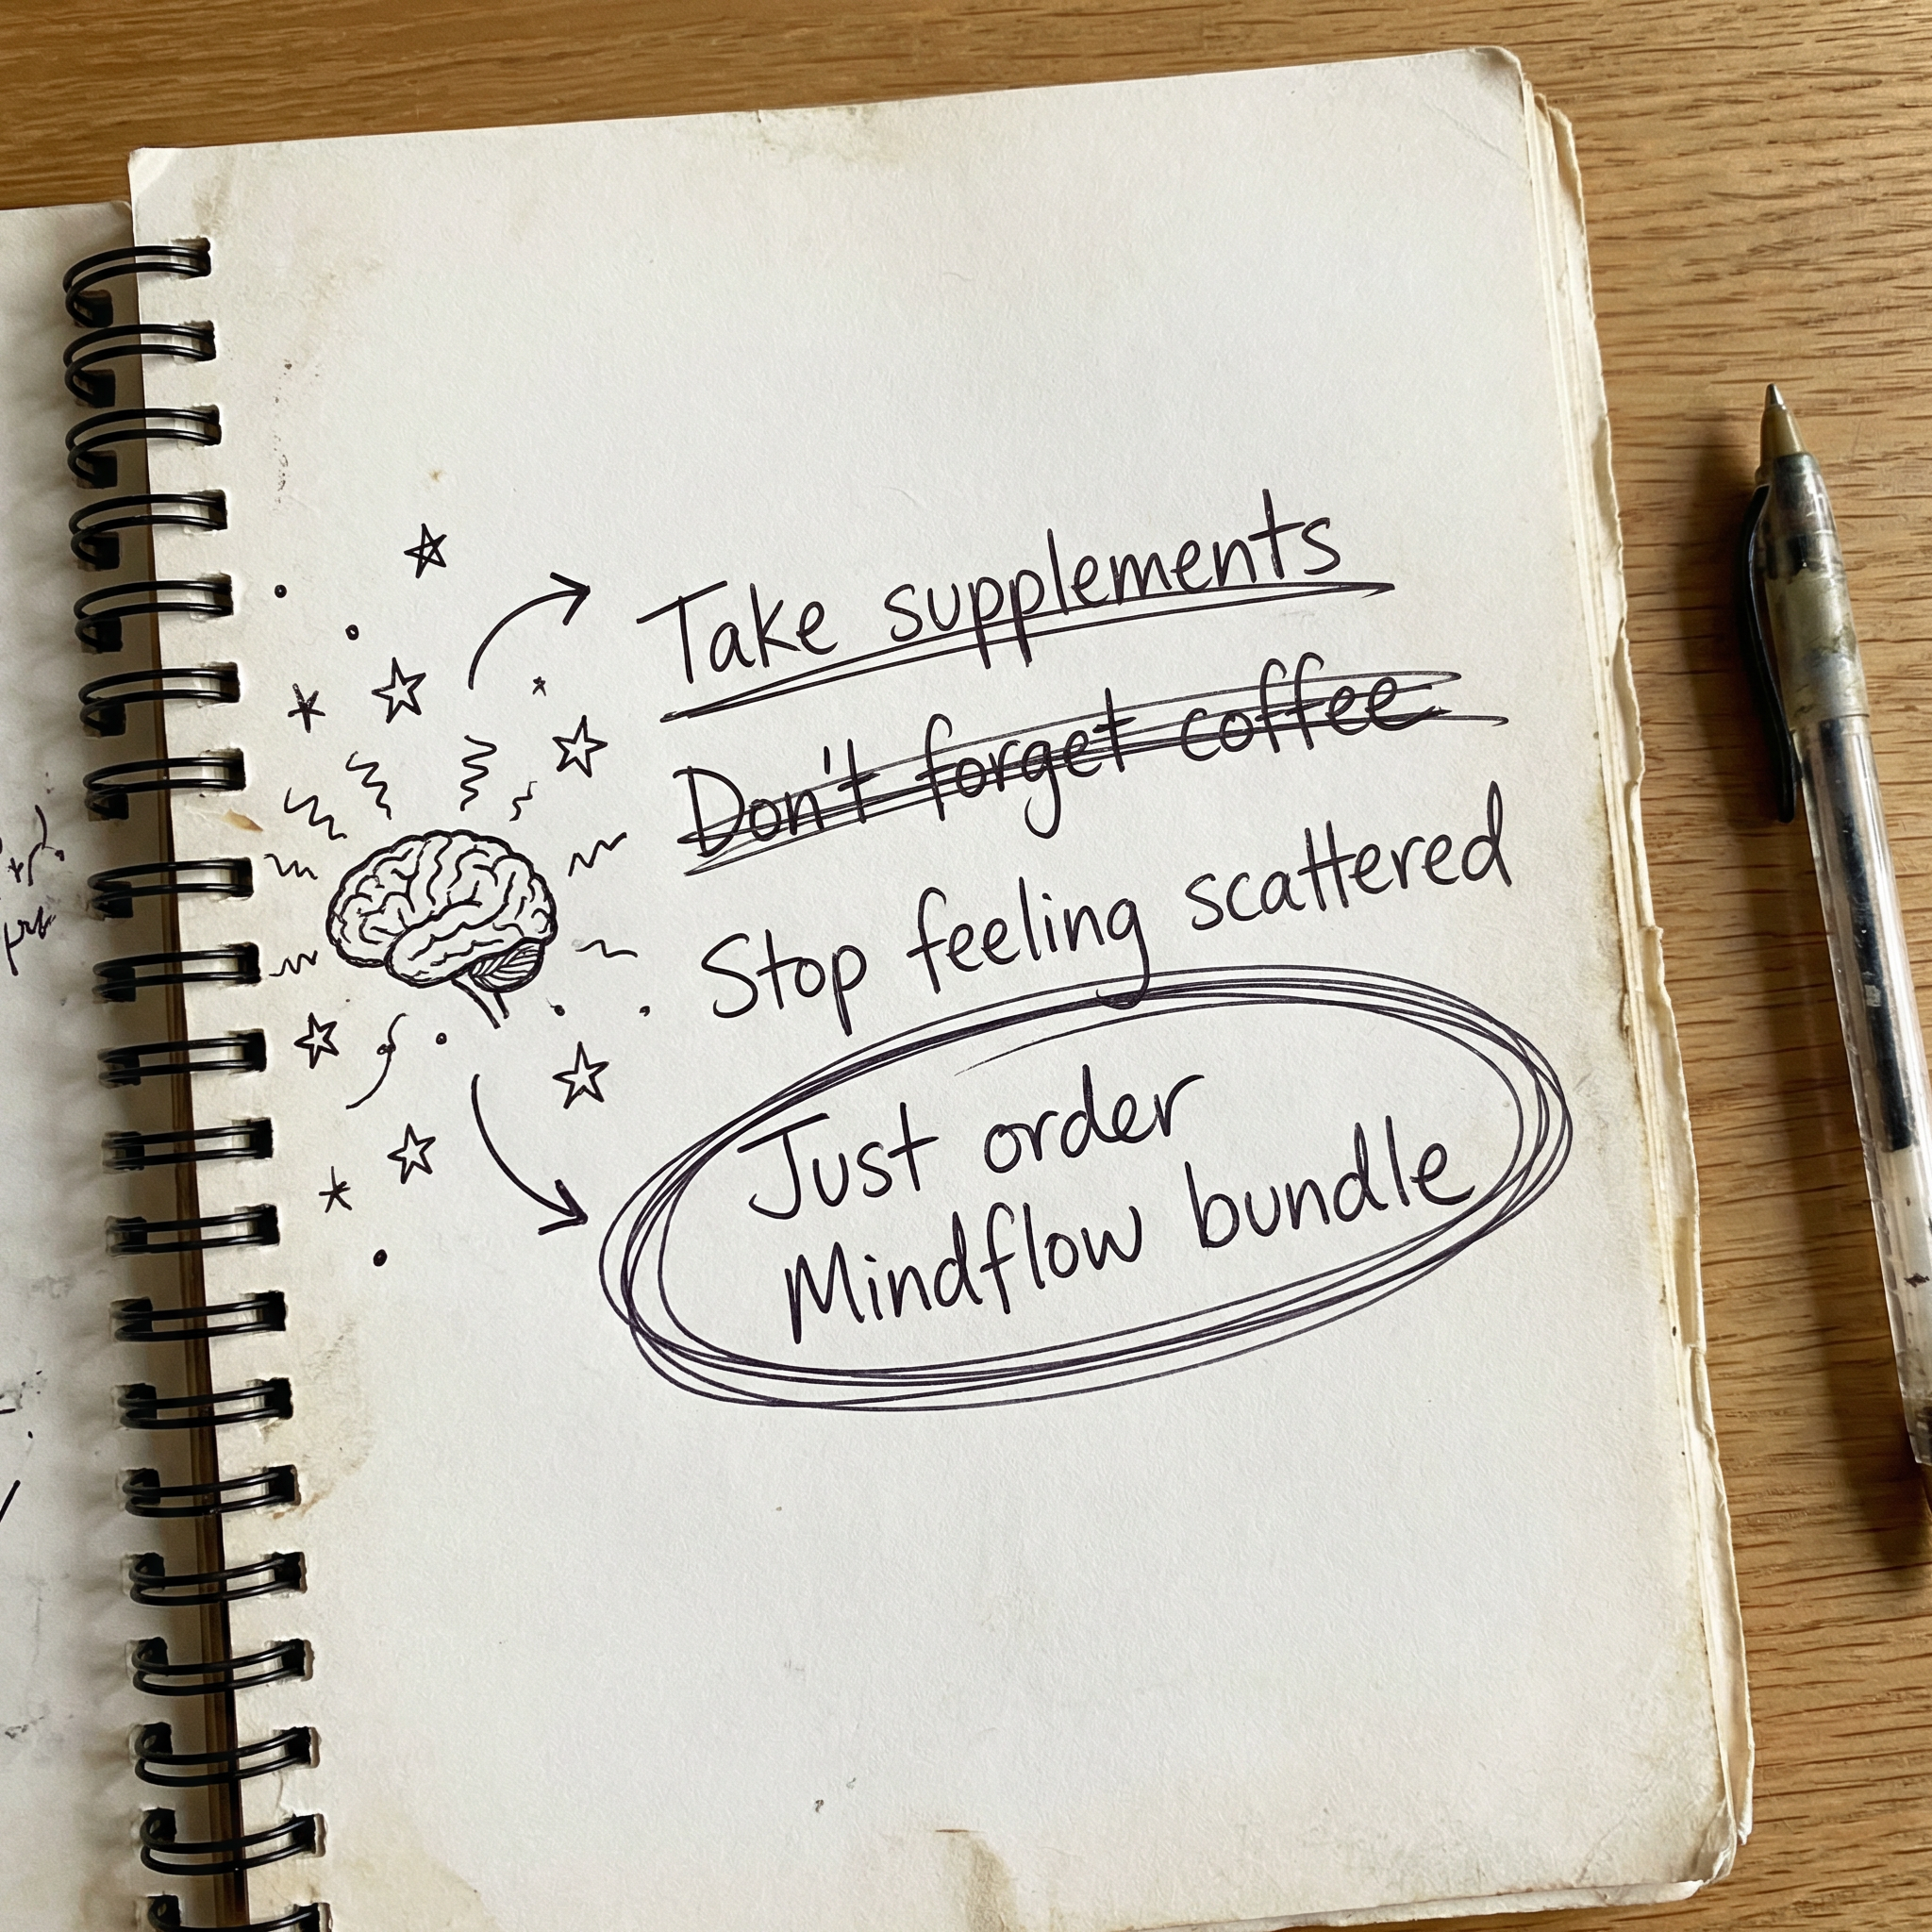 Take supplements
Don't forget coffee
Stop feeling scattered
Just order
Mindflow bundle